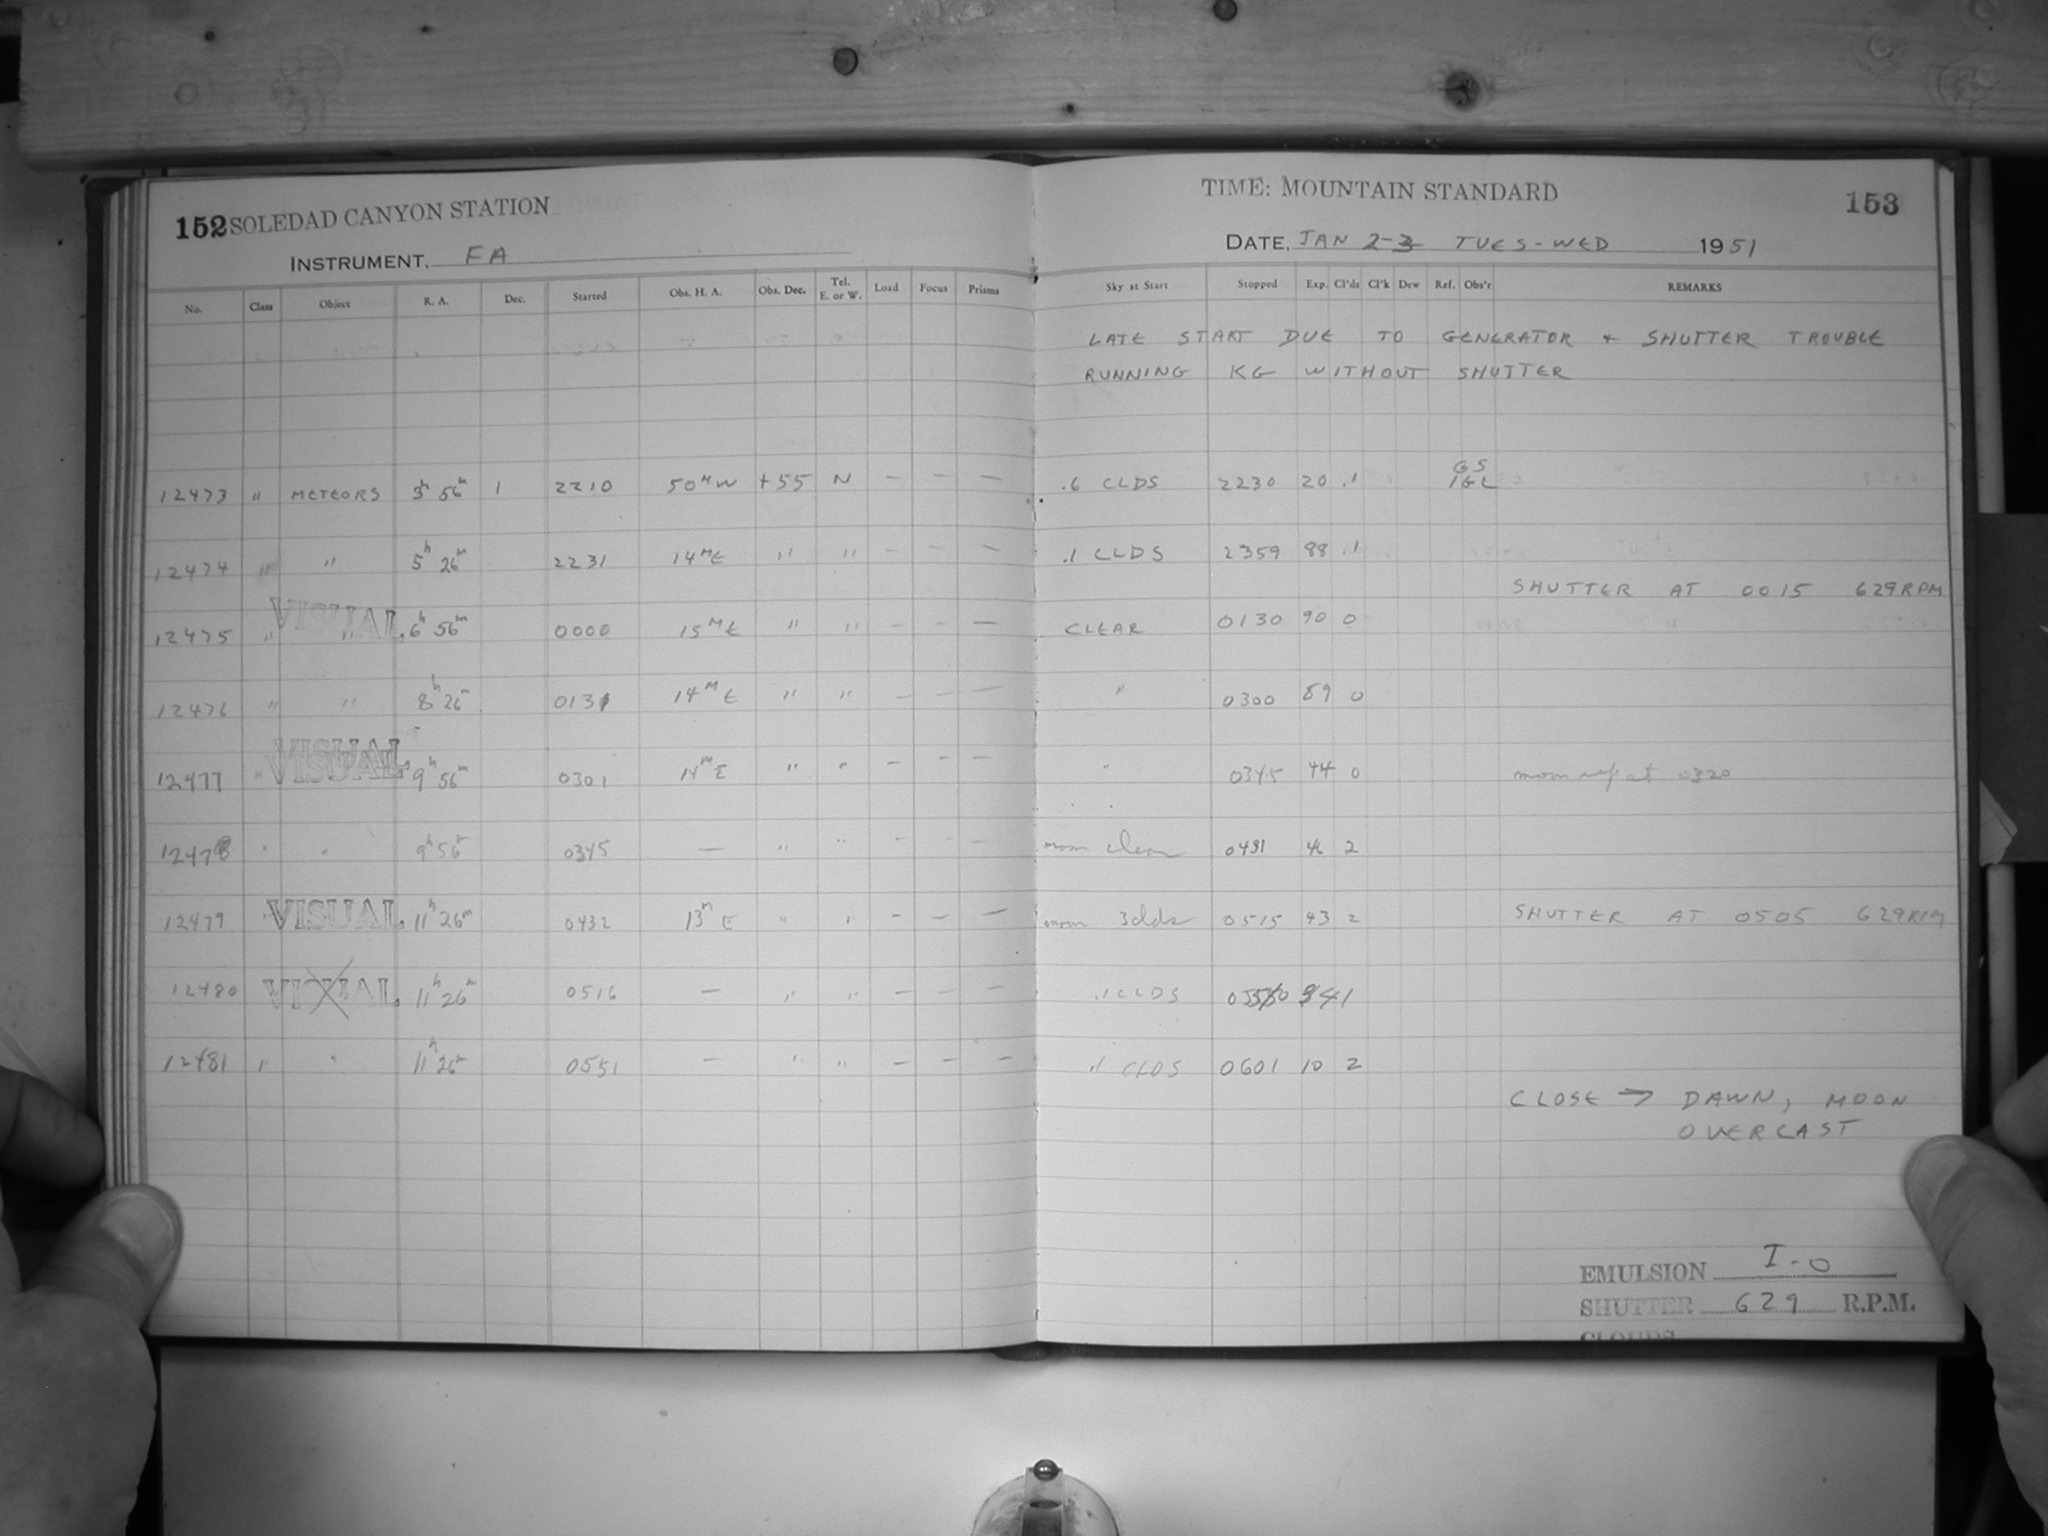 152 SOLEDAD CANYON STATION
INSTRUMENT, FA
No. Class Object R. A. Dec. Started Obs. H. A. Obs. Dec. Tel. E. or W. Load Focus Prisms
12473 " METEORS 3h 56m 2210 50M W +55 N — — —
12474 " " 5h 26m 2231 14M E " " — — —
VISUAL
12475 " " 6h 56m 0000 15M E " " — — —
12476 " " 8h 26m 0131 14M E " " — — —
VISUAL
VISUAL
12477 " 9h 56m 0301 14m E " " — — —
12478 " " 9h 56m 0345 — " " — — —
12479 VISUAL 11h 26m 0432 13m E " " — — —
12480 VISUAL 11h 26m 0516 — " " — — —
12481 " " 11h 26m 0551 — " " — — —
TIME: MOUNTAIN STANDARD 153
DATE, JAN 2-3 TUES-WED 1951
Sky at Start Stopped Exp. Cl'ds Cl'k Dew Ref. Obs'r REMARKS
LATE START DUE TO GENERATOR + SHUTTER TROUBLE
RUNNING KG WITHOUT SHUTTER
.6 CLDS 2230 20 .1 GS / GL
.1 CLDS 2359 88 .1
SHUTTER AT 0015 629RPM
CLEAR 0130 90 0
" 0300 89 0
" 0345 44 0 moon up at 0320
moon clear 0431 46 2
moon 3 clds 0515 43 2 SHUTTER AT 0505 629RPM
.1 CLDS
.1 CLDS 0601 10 2
CLOSE → DAWN, MOON
OVERCAST
EMULSION I-O
SHUTTER 629 R.P.M.
CLOUDS